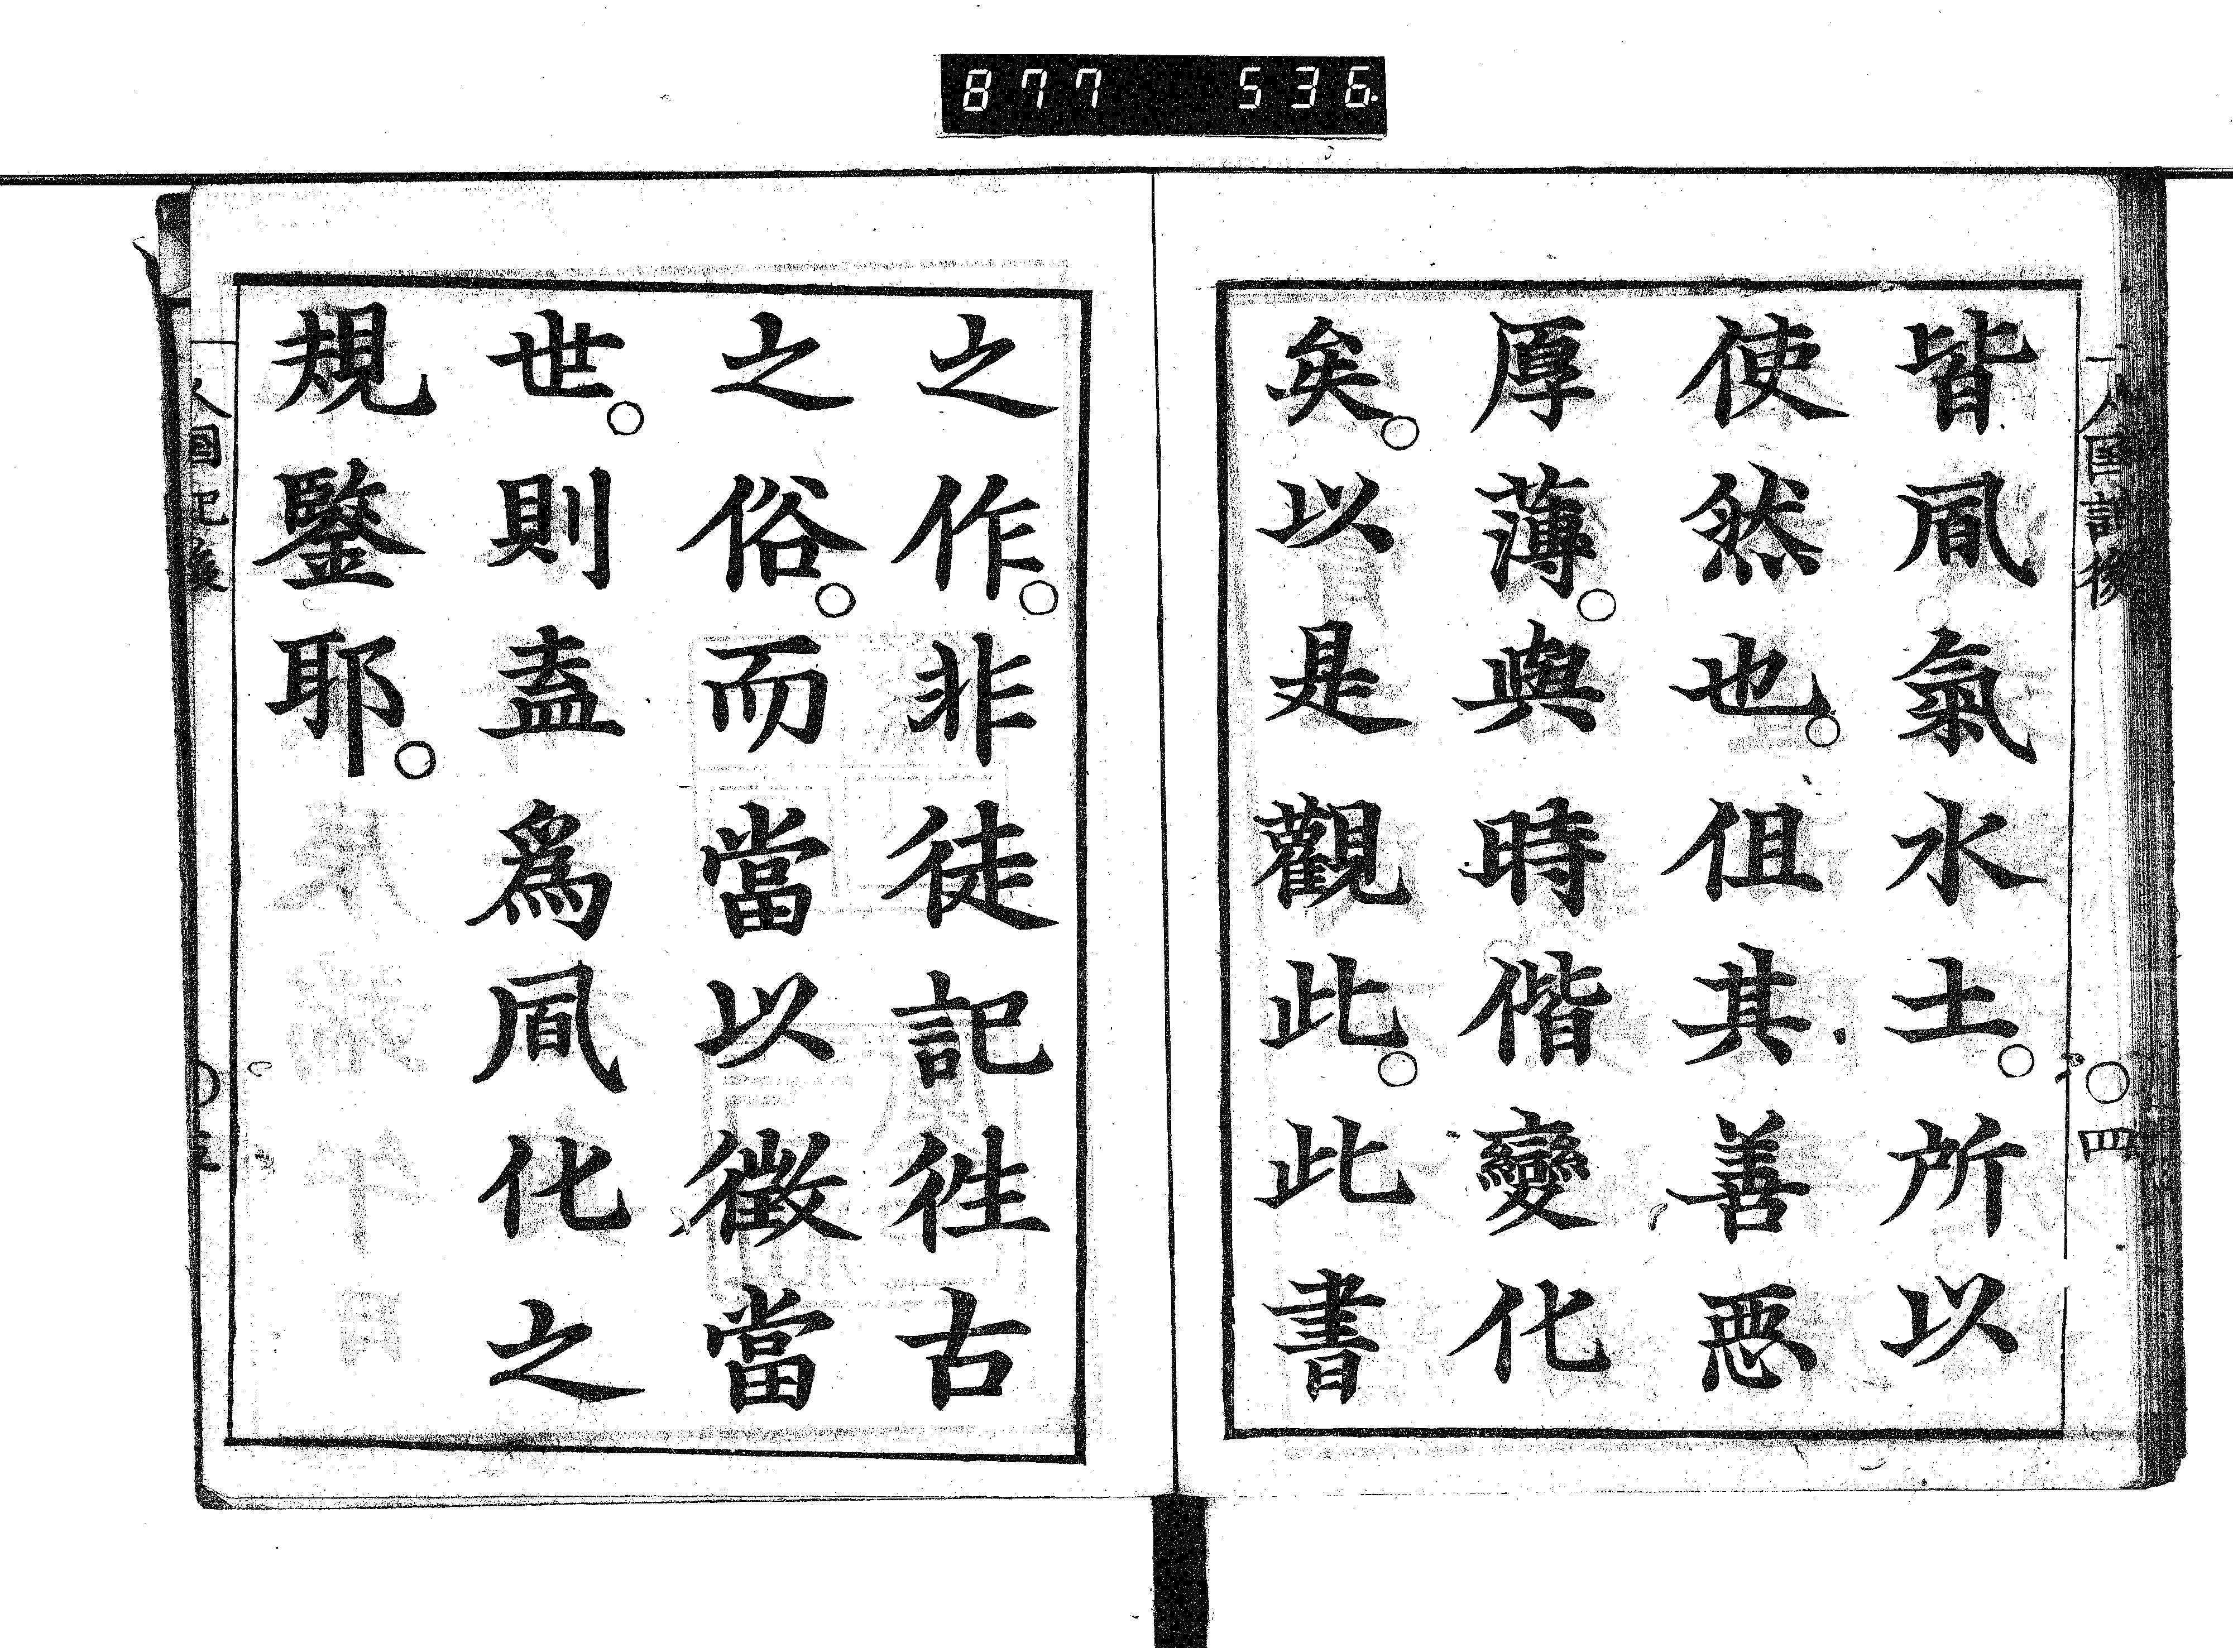 877 536
皆凬氣水土。所以
使然也。伹其善惡
厚薄。與時偕變化
矣。以是觀此。此書
之作。非徒記徃古
之俗。而當以徵當
世。則盍爲凬化之
規鑒耶。
人国記後
〇四